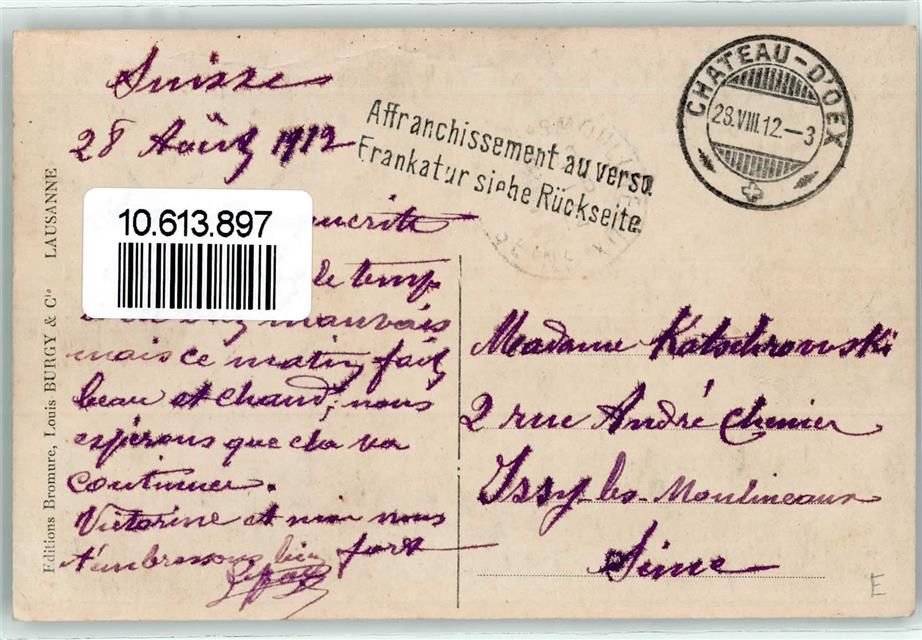 Suisse
28 Août 1912
Affranchissement au verso.
Frankatur siehe Rückseite.
CHATEAU-D'OEX
28.VIII.12.-3
10.613.897
le temps
mauvais
mais ce matin fait
beau et chaud; nous
espérons que cela va
continuer.
Victorine et moi nous
t'embrassons bien fort
Madame Katschrowski
2 rue André Chenier
Issy les Moulineaux
Seine
Editions Bromure, Louis BURGY & Cie LAUSANNE
E